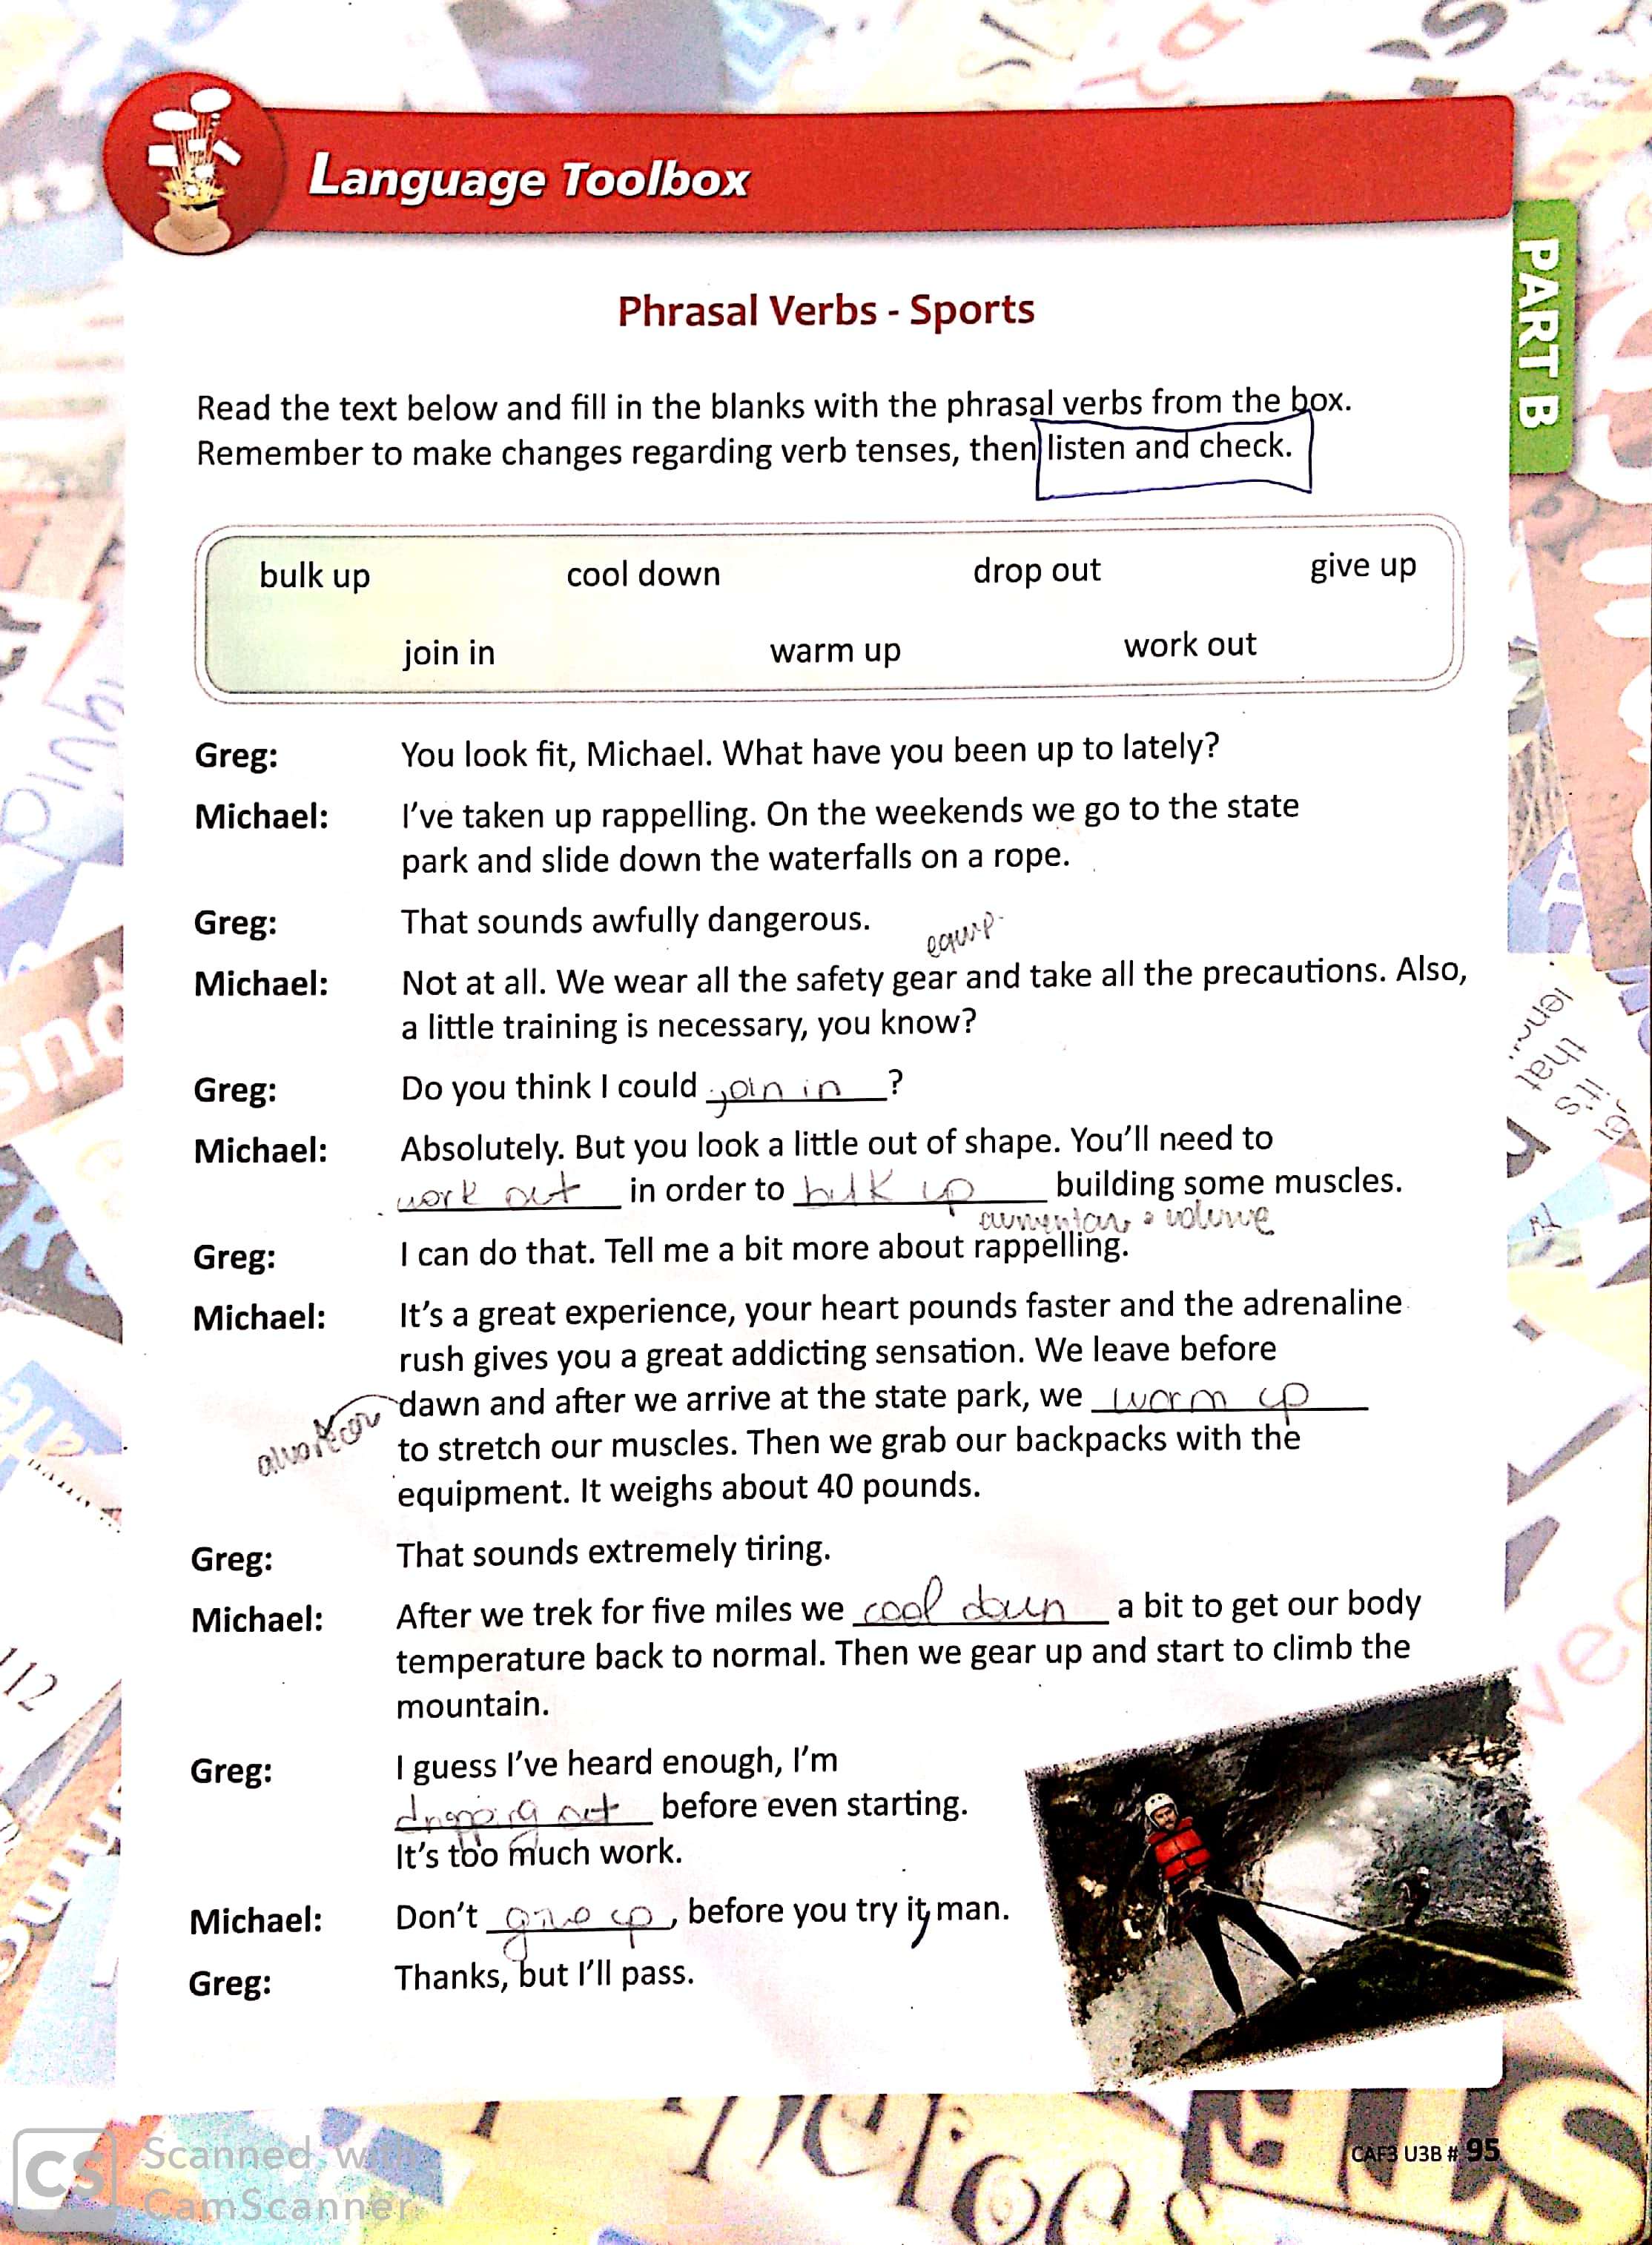 Language Toolbox
PART B
Phrasal Verbs - Sports
Read the text below and fill in the blanks with the phrasal verbs from the box.
Remember to make changes regarding verb tenses, then listen and check.
bulk up cool down drop out give up
join in warm up work out
Greg: You look fit, Michael. What have you been up to lately?
Michael: I've taken up rappelling. On the weekends we go to the state
park and slide down the waterfalls on a rope.
Greg: That sounds awfully dangerous.
equip.
Michael: Not at all. We wear all the safety gear and take all the precautions. Also,
a little training is necessary, you know?
Greg: Do you think I could join in ?
Michael: Absolutely. But you look a little out of shape. You'll need to
work out in order to bulk up building some muscles.
aumentar o volume
Greg: I can do that. Tell me a bit more about rappelling.
Michael: It's a great experience, your heart pounds faster and the adrenaline
rush gives you a great addicting sensation. We leave before
dawn and after we arrive at the state park, we warm up
to stretch our muscles. Then we grab our backpacks with the
equipment. It weighs about 40 pounds.
Greg: That sounds extremely tiring.
Michael: After we trek for five miles we cool down a bit to get our body
temperature back to normal. Then we gear up and start to climb the
mountain.
Greg: I guess I've heard enough, I'm
dropping out before even starting.
It's too much work.
Michael: Don't give up, before you try it, man.
Greg: Thanks, but I'll pass.
CAF3 U3B # 95
CS Scanned with
CamScanner